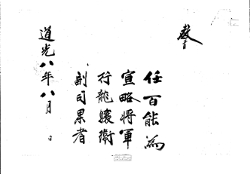 任百能爲
宣略將軍
行龍驤衛
副司果者
道光八年八月 日